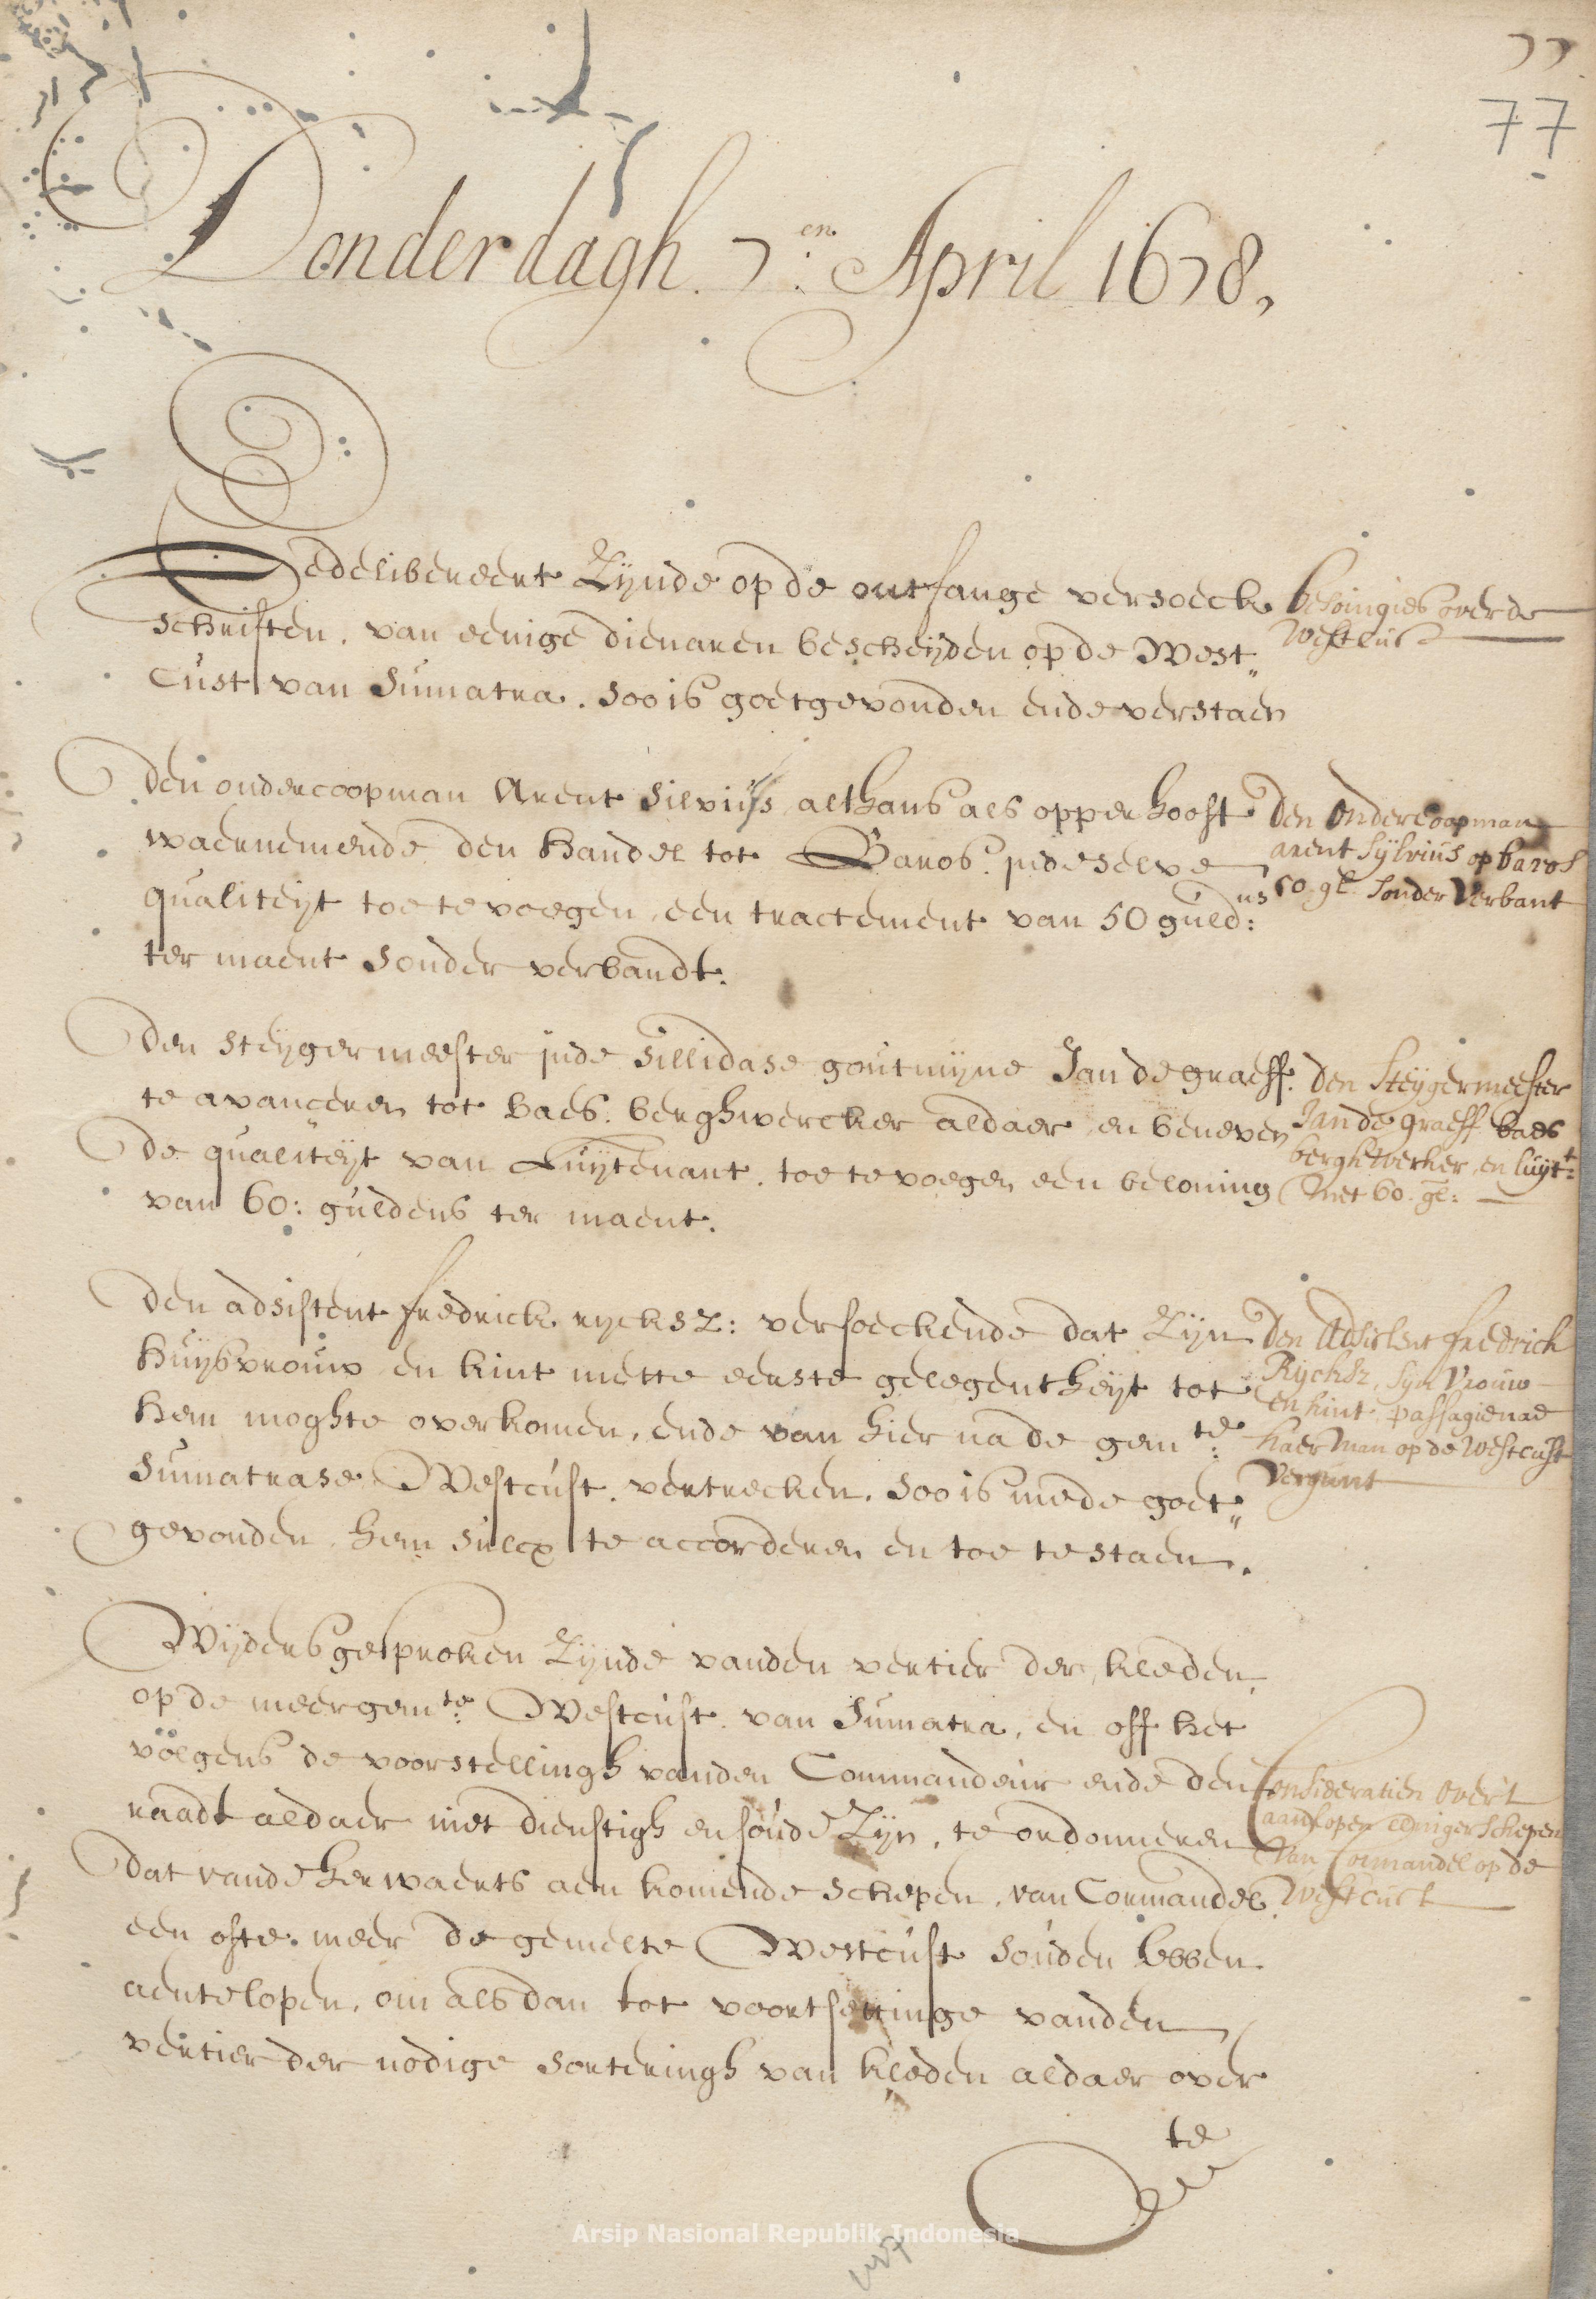 77
77
Donderdagh. 7:en April 1678,
Gedelibereert Zijnde op de ontfange versoeck
schriften, van eenige dienaren bescheijden op de West„
Cust van Sumatra. Soo is goetgevonden ende verstaen
besoingies over de
Westcust
Den ondercoopman Arent Silvius althans als opperhooft
waernemende den handel tot Baros. in deselve
qualiteijt toe te voegen een tractement van 50 guld:ns
ter maent sonder verbandt.
Den ondercoopman
arent Sylvius op baros
50 gl. sonder verbant
Den steijgermeester inde Sillidase goutmijne Jan de graeff.
te avanceren tot baes. berghwercker aldaer en beneven
de qualiteijt van Luijtenant. toe te voegen een beloning
van 60: guldens ter maent.
den Steijgermeester
Jan de graeff baes
berghwerker en luijt:t
met 60. gl:
Den adsistent fredrick rycksz: versoeckende dat Zijn
huijsvrouw en kint mette eerste gelegentheijt tot
hem moghte overkomen, ende van hier na de gem:te
Sumatrase Westcust. vertrecken. Soo is mede goet„
gevonden hem sulcx te accorderen en toe te staen.
den Adsistent fredrick
Rycksz, syn Vrouw
en kint, passagie nae
haer man op de westcust
vergunt
Wijders gesproken Zijnde vanden vertier der kleden,
op de meergem:te Westcust van Sumatra, en off het
volgens de voorstellingh vanden Commandeur ende den
raadt aldaer niet dienstigh en soude Zijn, te ordonneren
dat vande herwaerts aen komende schepen, van Cormandel
een ofte meer de gemelte Westcust souden hebben
aen te lopen, om als dan tot voortsettinge vanden
vertier der nodige sorteringh van kleden aldaer over
te
Consideratien over't
aanlopen eeniger schepen
van Cormandel op de
Westcust
Arsip Nasional Republik Indonesia